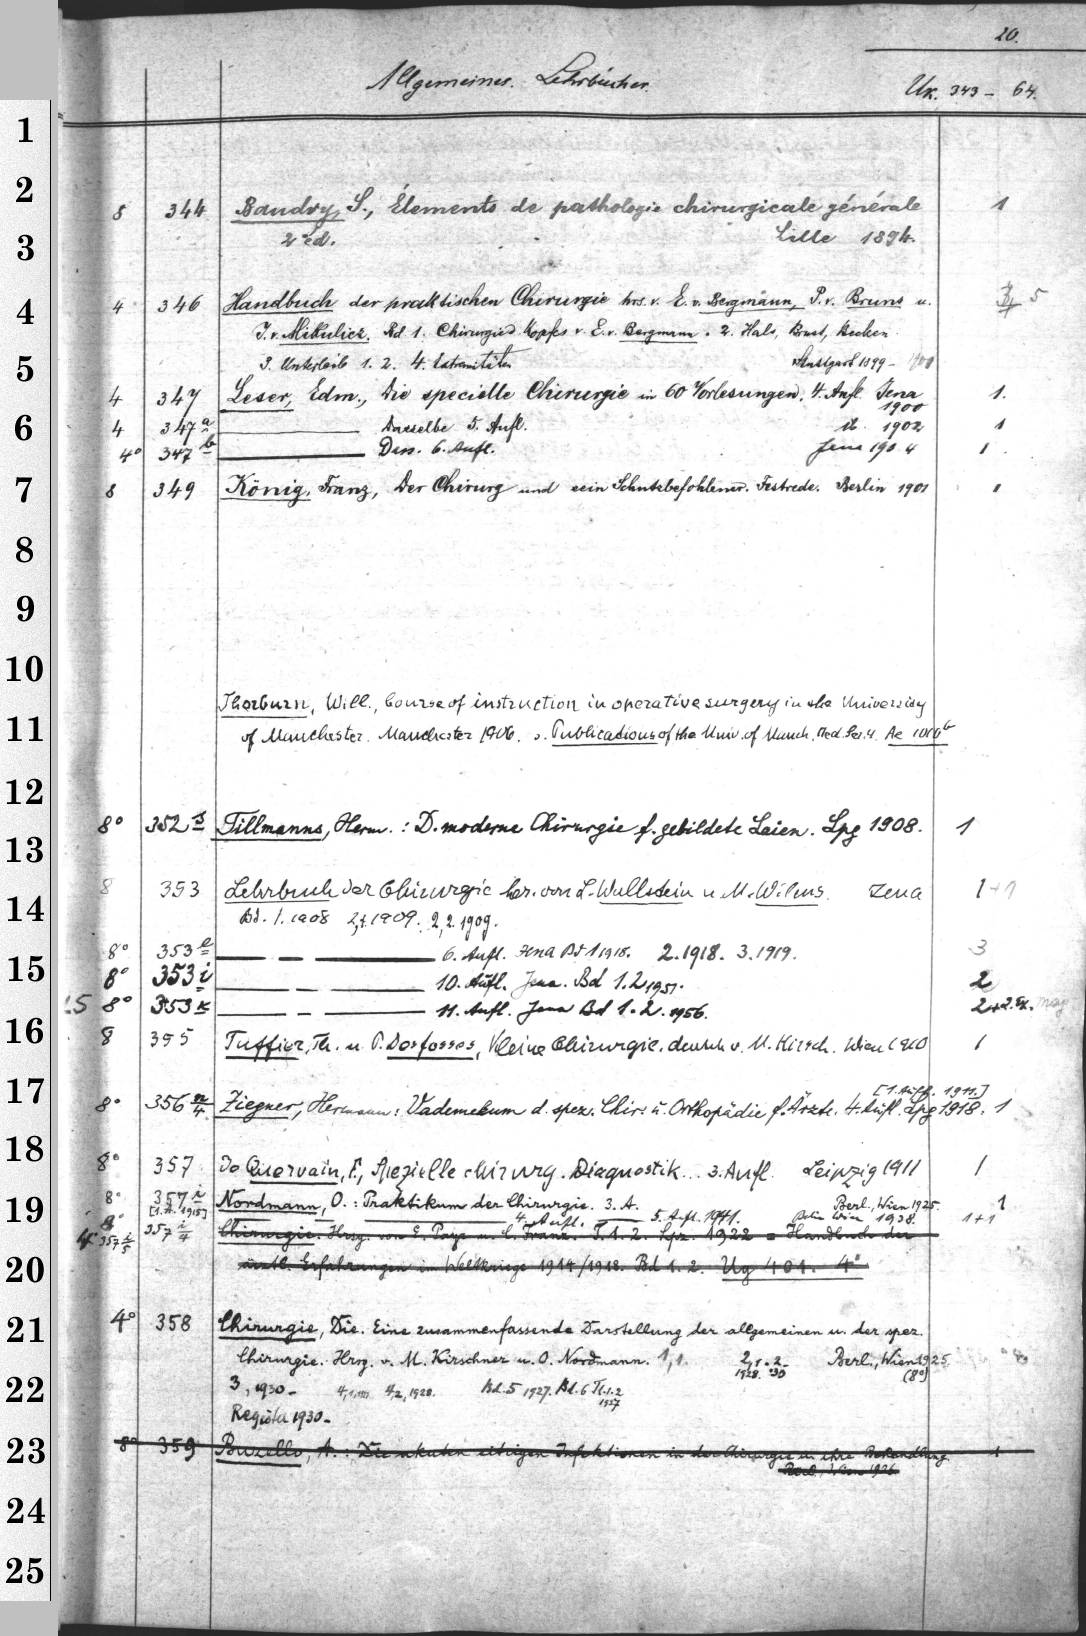 20.
Allgemeines. Lehrbücher.
Uk. 343 – 64.
1
2
3
4
5
6
7
8
9
10
11
12
13
14
15
16
17
18
19
20
21
22
23
24
25
8 344 Baudry, S., Élements de pathologie chirurgicale générale 1
2e éd. Lille 1894.
4 346 Handbuch der praktischen Chirurgie hrs. v. E. v. Bergmann, P. v. Bruns u. 5
J. v. Mikulicz. Bd 1. Chirurgie d. Kopfes v. E. v. Bergmann. 2. Hals, Brust, Becken
3. Unterleib 1. 2. 4. Extremitäten Stuttgart 1899 –
4 347 Leser, Edm., Die specielle Chirurgie in 60 Vorlesungen. 4. Aufl. Jena 1900 1.
4 347a Dasselbe 5. Aufl. 1902 1
4° 347b Dass. 6. Aufl. Jena 1904 1
8 349 König, Franz, Der Chirurg und sein Schutzbefohlener. Festrede. Berlin 1901 1
Thorburn, Will., Course of instruction in operative surgery in the University
of Manchester. Manchester 1906. s. Publications of the Univ. of Manch. Med. Ser. 4. Ae 1016b
8° 352s Tillmanns, Herm.: D. moderne Chirurgie f. gebildete Laien. Lpg 1908. 1
8 353 Lehrbuch der Chirurgie her. von L. Wullstein u. M. Wilms. Jena 1+1
Bd. 1. 1908 2,1. 1909. 2,2. 1909.
8° 353e — — 6. Aufl. Jena Bd 1 1918. 2. 1918. 3. 1919. 3
8° 353i — — 10. Aufl. Jena. Bd 1. 2 1951. 2
8° 353k — — 11. Aufl. Jena Bd 1. 2. 1956. 2+2. Ex.
8 355 Tuffier, Th. u. P. Desfosses, Kleine Chirurgie. deutsch v. M. Hirsch. Wien 1910 1
[1. Aufl. 1911.]
8° 356n/4 Ziegner, Hermann: Vademekum d. spez. Chir. u. Orthopädie f. Ärzte. 4. Aufl. Lpg 1918. 1
8° 357 De Quervain, F., Spezielle chirurg. Diagnostik. 3. Aufl. Leipzig 1911 1
8° 357i Nordmann, O.: Praktikum der Chirurgie. 3. A. Berl., Wien 1925. 1
[1. A. 1915]
8° 357i/4 4. Aufl. Berlin Wien 1938. 1+1
4° 357i/5 5. Aufl. 1941.
Chirurgie. Hrsg. von E. Payr u. C. Franz. T. 1. 2. Lpz. 1922 = Handbuch der
ärztl. Erfahrungen im Weltkriege 1914/1918. Bd 1. 2. Ug 401. 4°
4° 358 Chirurgie, Die. Eine zusammenfassende Darstellung der allgemeinen u. der spez.
Chirurgie. Hrsg. v. M. Kirschner u. O. Nordmann. 1,1. 2,1. 2. 1928. '30 Berl., Wien 1925. (8°)
3, 1930 – 4,2, 1928. Bd. 5 1927. Bd. 6 Tl. 1.2 1927
Register 1930 –
8° 359 Buzello, A.: Die akuten eitrigen Infektionen in der Chirurgie u. ihre Behandlung. 1
Berl., Wien 1926